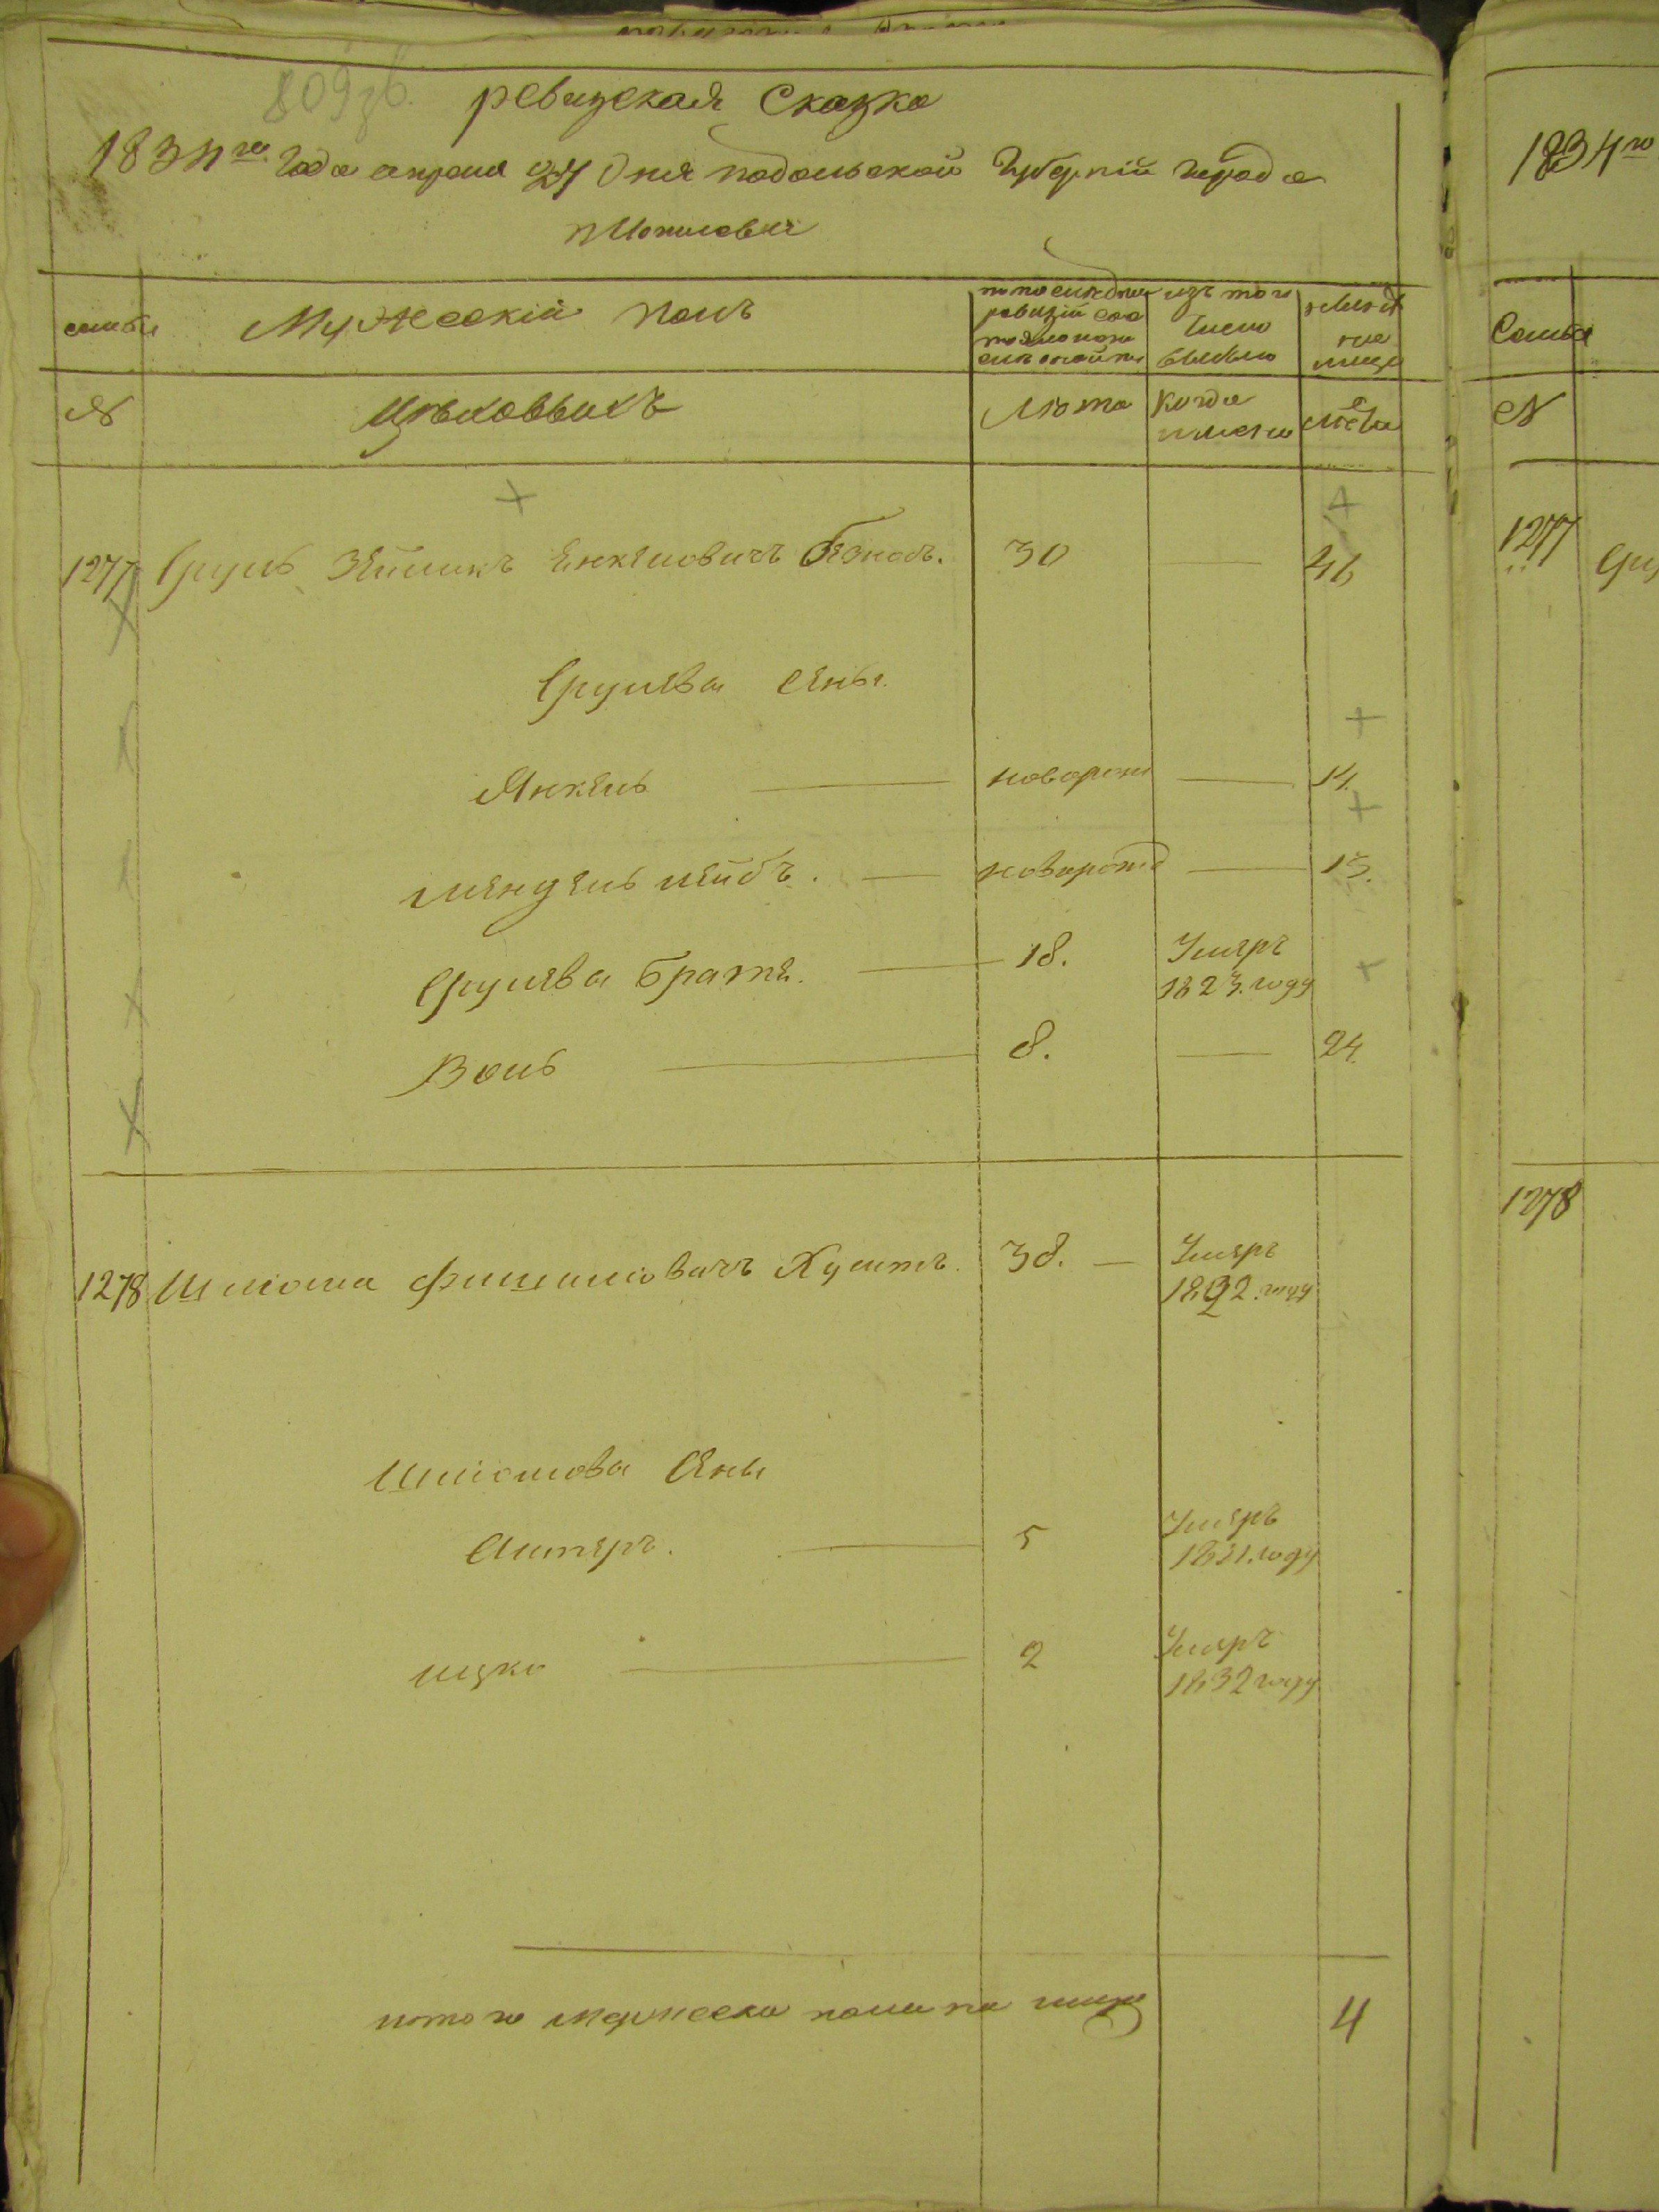 809 зв.
ревизская Сказка
1834го Года апреля 27 дня подольской Губерній города
Могилева
семьи
Мужескій полъ
по последней ревизій состояло
изъ того число выбыло
ныне на лицо
№
Лѣта
Когда именно
Лѣта
1277 Сруль Зейликъ Енкелевичъ 30 — 46
Срулева сены.
Янкель — новорож — 14.
мендель лейбъ. — новорожд — 13.
Срулева братя. — 18. Умеръ 1823. году
Воль — 8. — 24.
1278 Шлиома Фишилювичъ 38. — Умеръ 1832. году
Шлиомова Сены
Алтеръ. — 5 Умеръ 1831. году
ицко — 2 Умеръ 1832 году
итого мужеска пола на лицо 4
1834го
Семьи
№
1277 Сру
1278